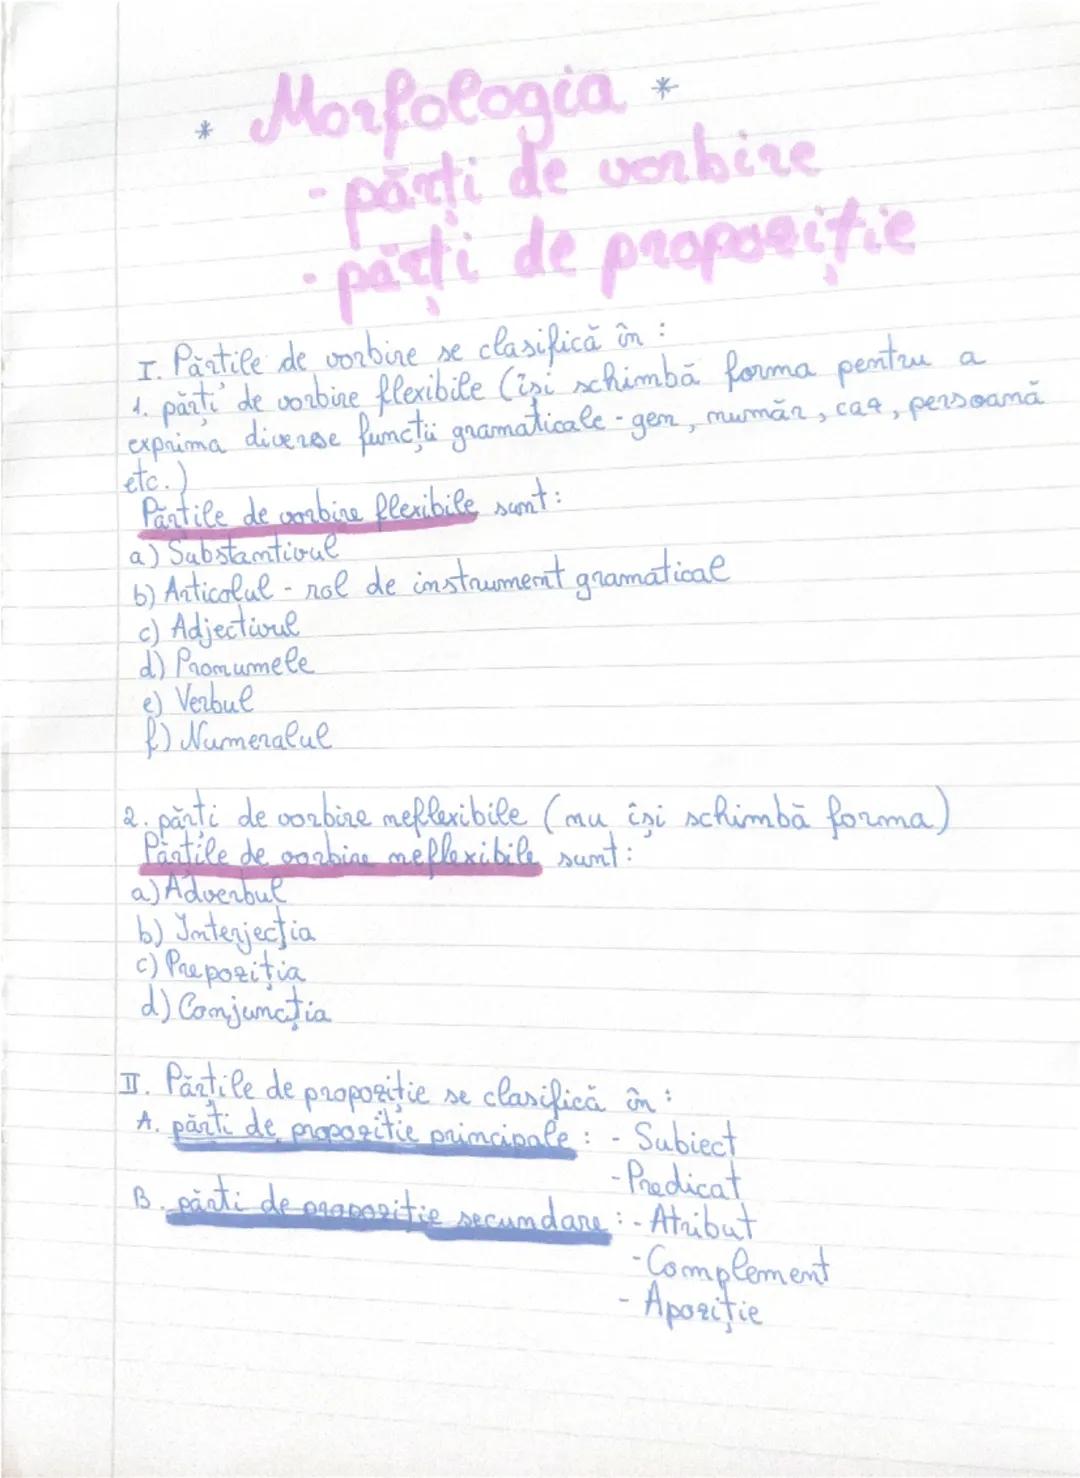 * Morfologia *
- părți de vorbire
- părți de propoziție
I. Părțile de vorbire se clasifică în :
1. părți de vorbire flexibile (își schimbă forma pentru a
exprima diverse funcții gramaticale - gen, număr, caz, persoană
etc.)
Părțile de vorbire flexibile sunt:
a) Substantivul
b) Articolul - rol de instrument gramatical
c) Adjectivul
d) Pronumele
e) Verbul
f) Numeralul
2. părți de vorbire neflexibile (nu își schimbă forma)
Părțile de vorbire neflexibile sunt:
a) Adverbul
b) Interjecția
c) Prepoziția
d) Conjuncția
II. Părțile de propoziție se clasifică în :
A. părți de propoziție principale : - Subiect
- Predicat
B. părți de propoziție secundare : - Atribut
- Complement
- Apoziție